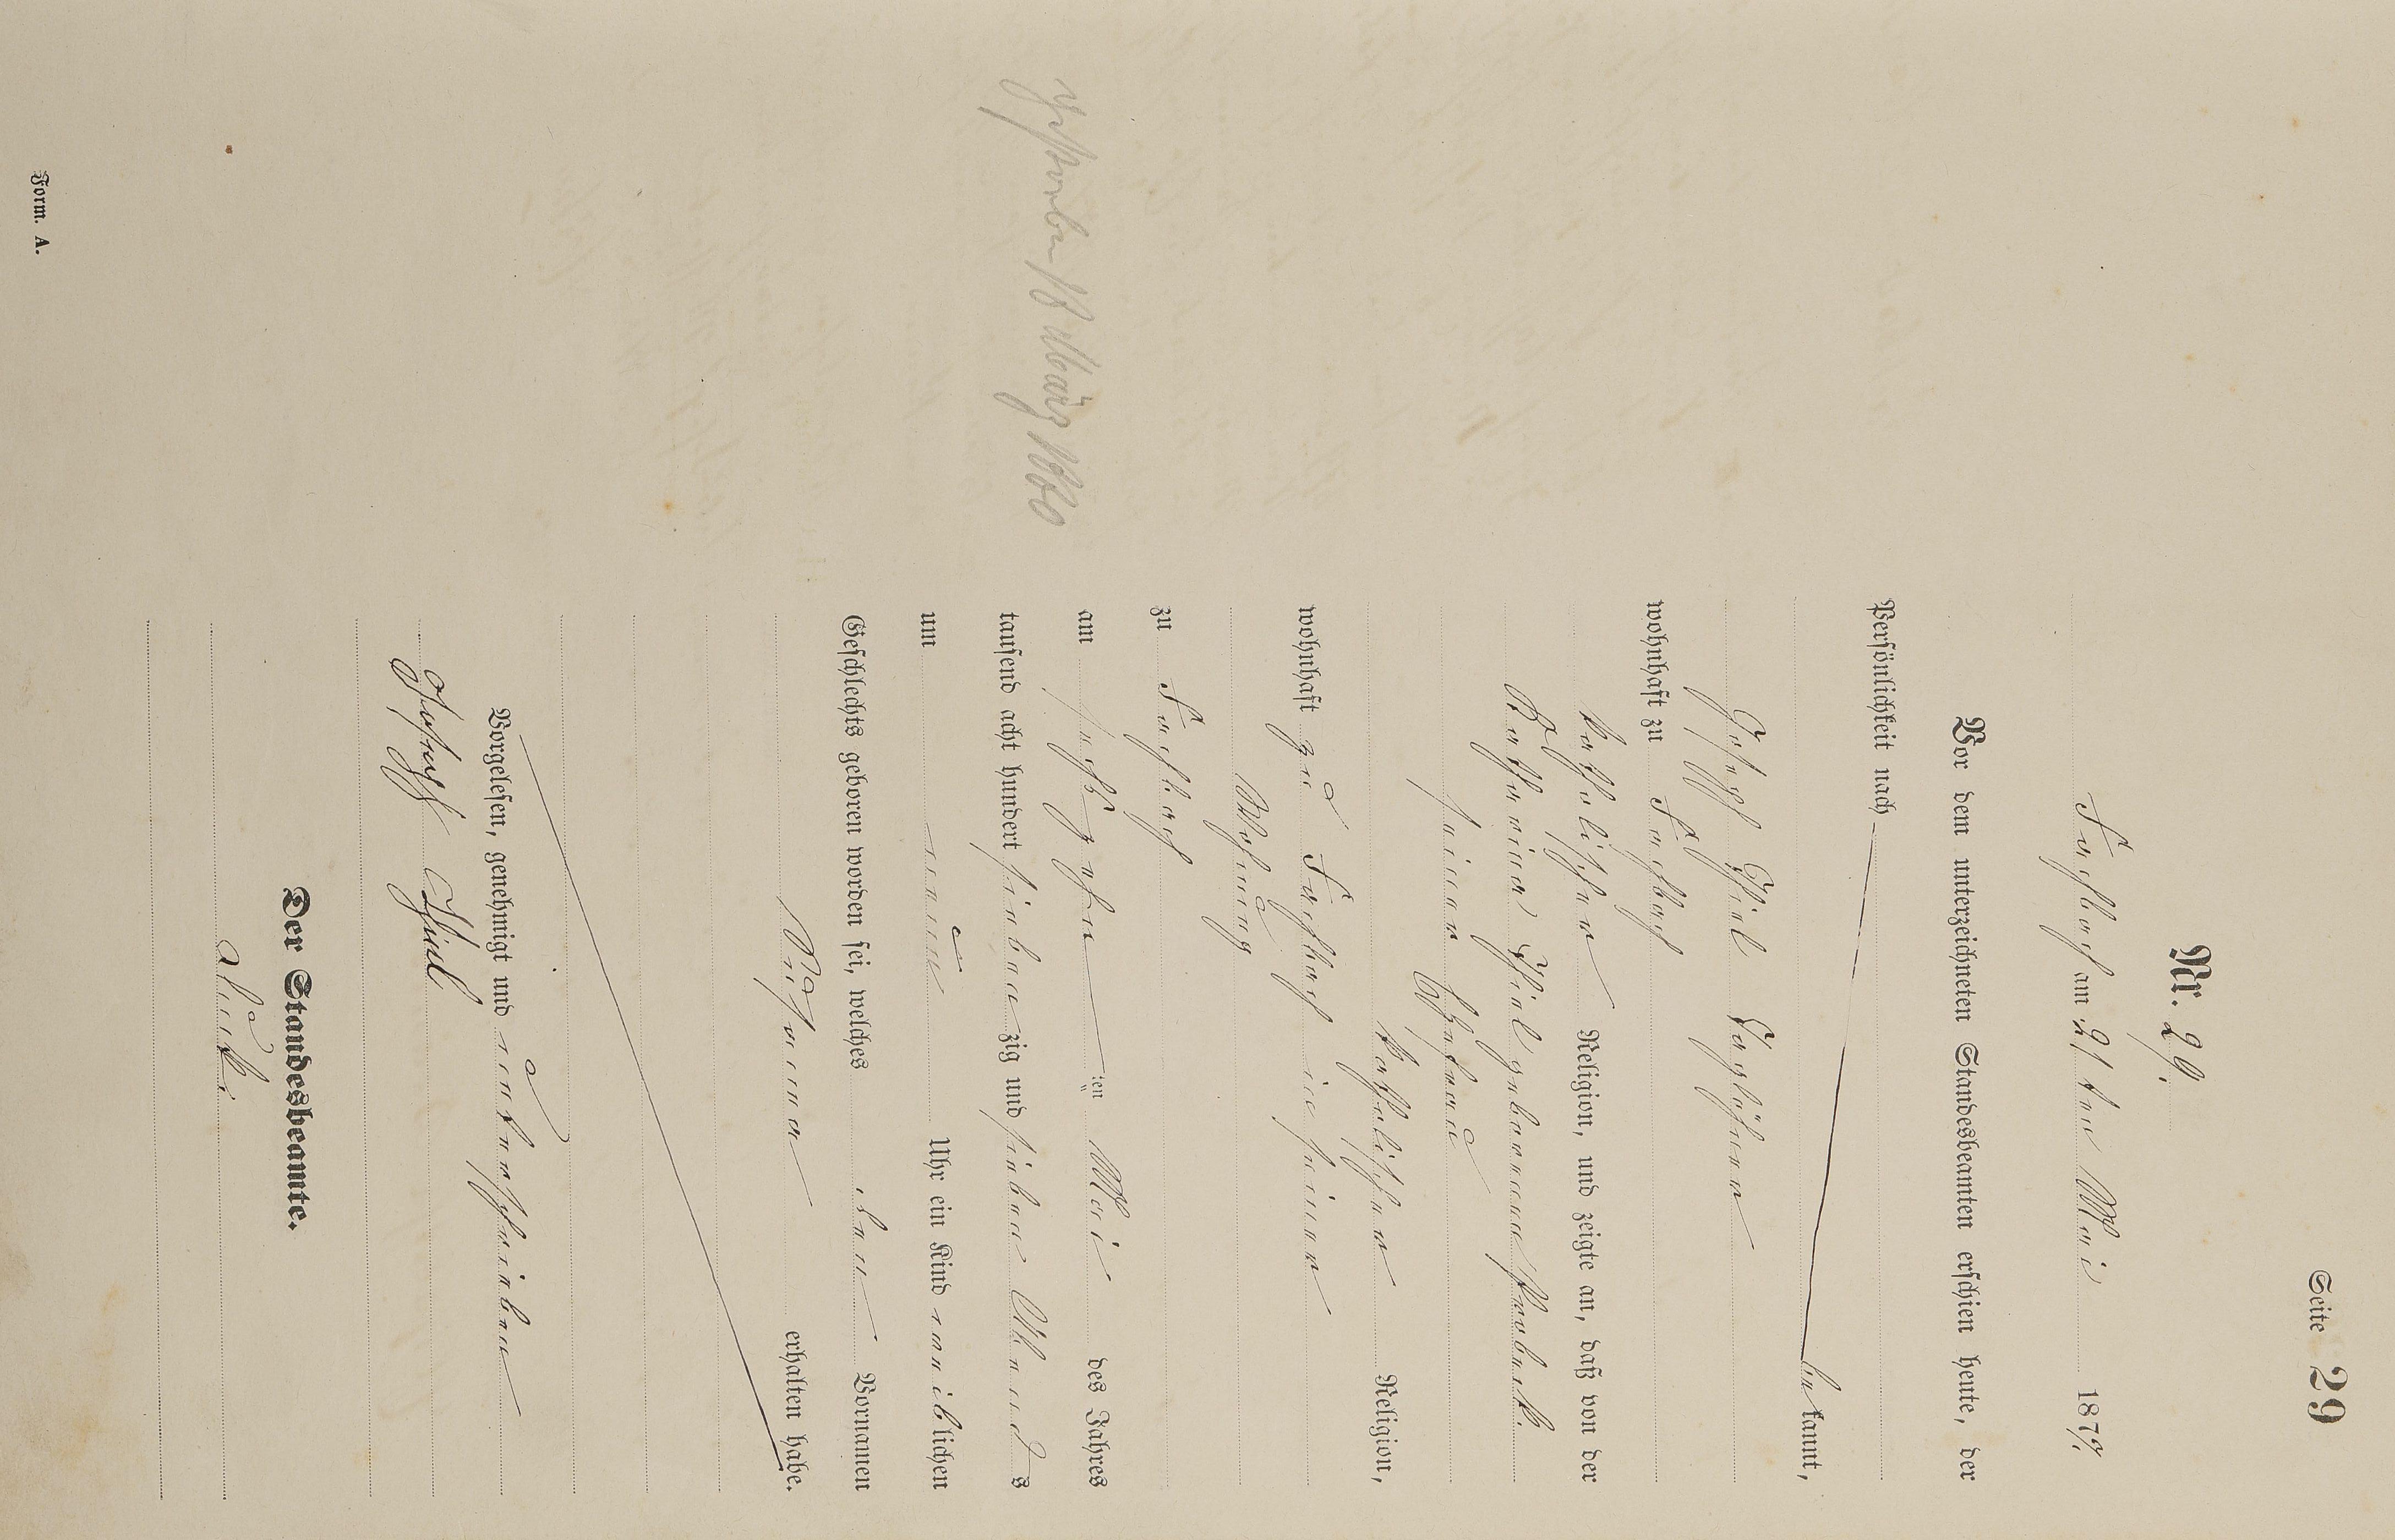 Seite 29
Nr. 29.
Fachbach am 21ten Mai 1877.
Vor dem unterzeichneten Standesbeamten erschien heute, der
Persönlichkeit nach
bekannt,
Joseph Thiel Taglöhner
wohnhaft zu Fachbach
katholischer Religion, und zeigte an, daß von der
Katharina Thiel geborenen
seiner Ehefrau
katholischer Religion,
wohnhaft zu Fachbach in seiner
Wohnung
zu Fachbach
am sechszehn ten Mai des Jahres
tausend acht hundert siebenzig und sieben Abends
um neun Uhr ein Kind weiblichen
Geschlechts geboren worden sei, welches den Vornamen
Susanna erhalten habe.
Vorgelesen, genehmigt und unterschrieben
Joseph Thiel
Der Standesbeamte.
Gestorben 18 März 1880
Form. A.